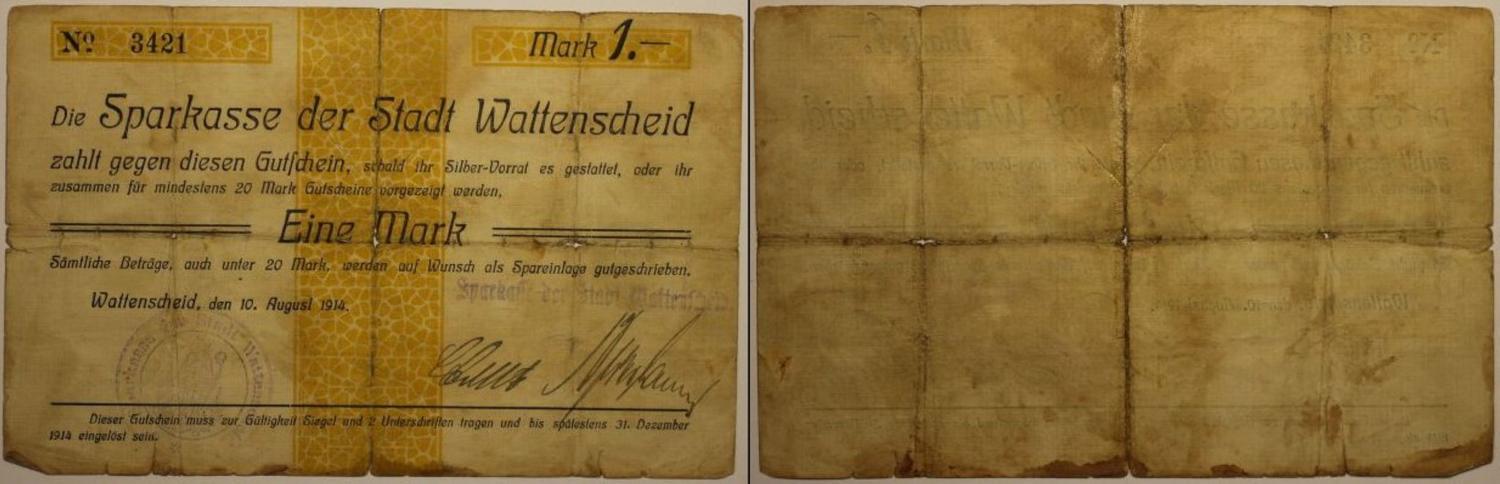 No 3421 Mark 1.—
Die Sparkasse der Stadt Wattenscheid
zahlt gegen diesen Gutschein, sobald ihr Silber-Vorrat es gestattet, oder ihr
zusammen für mindestens 20 Mark Gutscheine vorgezeigt werden,
Eine Mark
Sämtliche Beträge, auch unter 20 Mark, werden auf Wunsch als Spareinlage gutgeschrieben.
Sparkasse der Stadt Wattenscheid
Wattenscheid, den 10. August 1914.
Sparkasse der Stadt
Dieser Gutschein muss zur Gültigkeit Siegel und 2 Unterschriften tragen und bis spätestens 31. Dezember
1914 eingelöst sein.